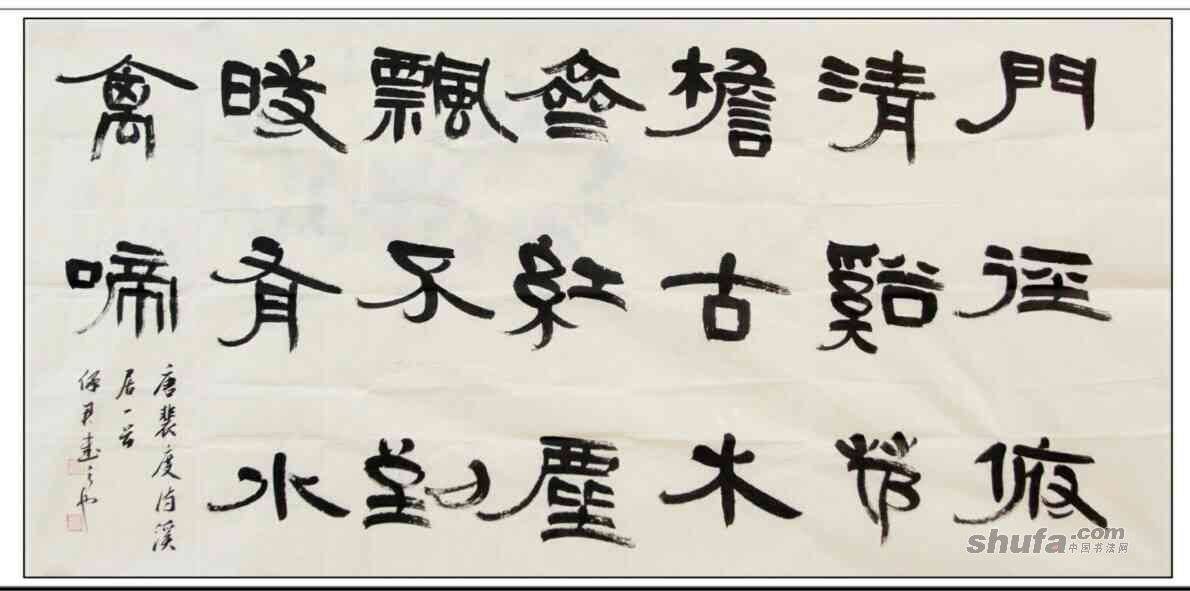 門徑俯
清谿茅
檐古木
齊紅塵
飄不到
時有水
禽啼
唐裴度詩溪
居一首
書
shufa.com
中国书法网